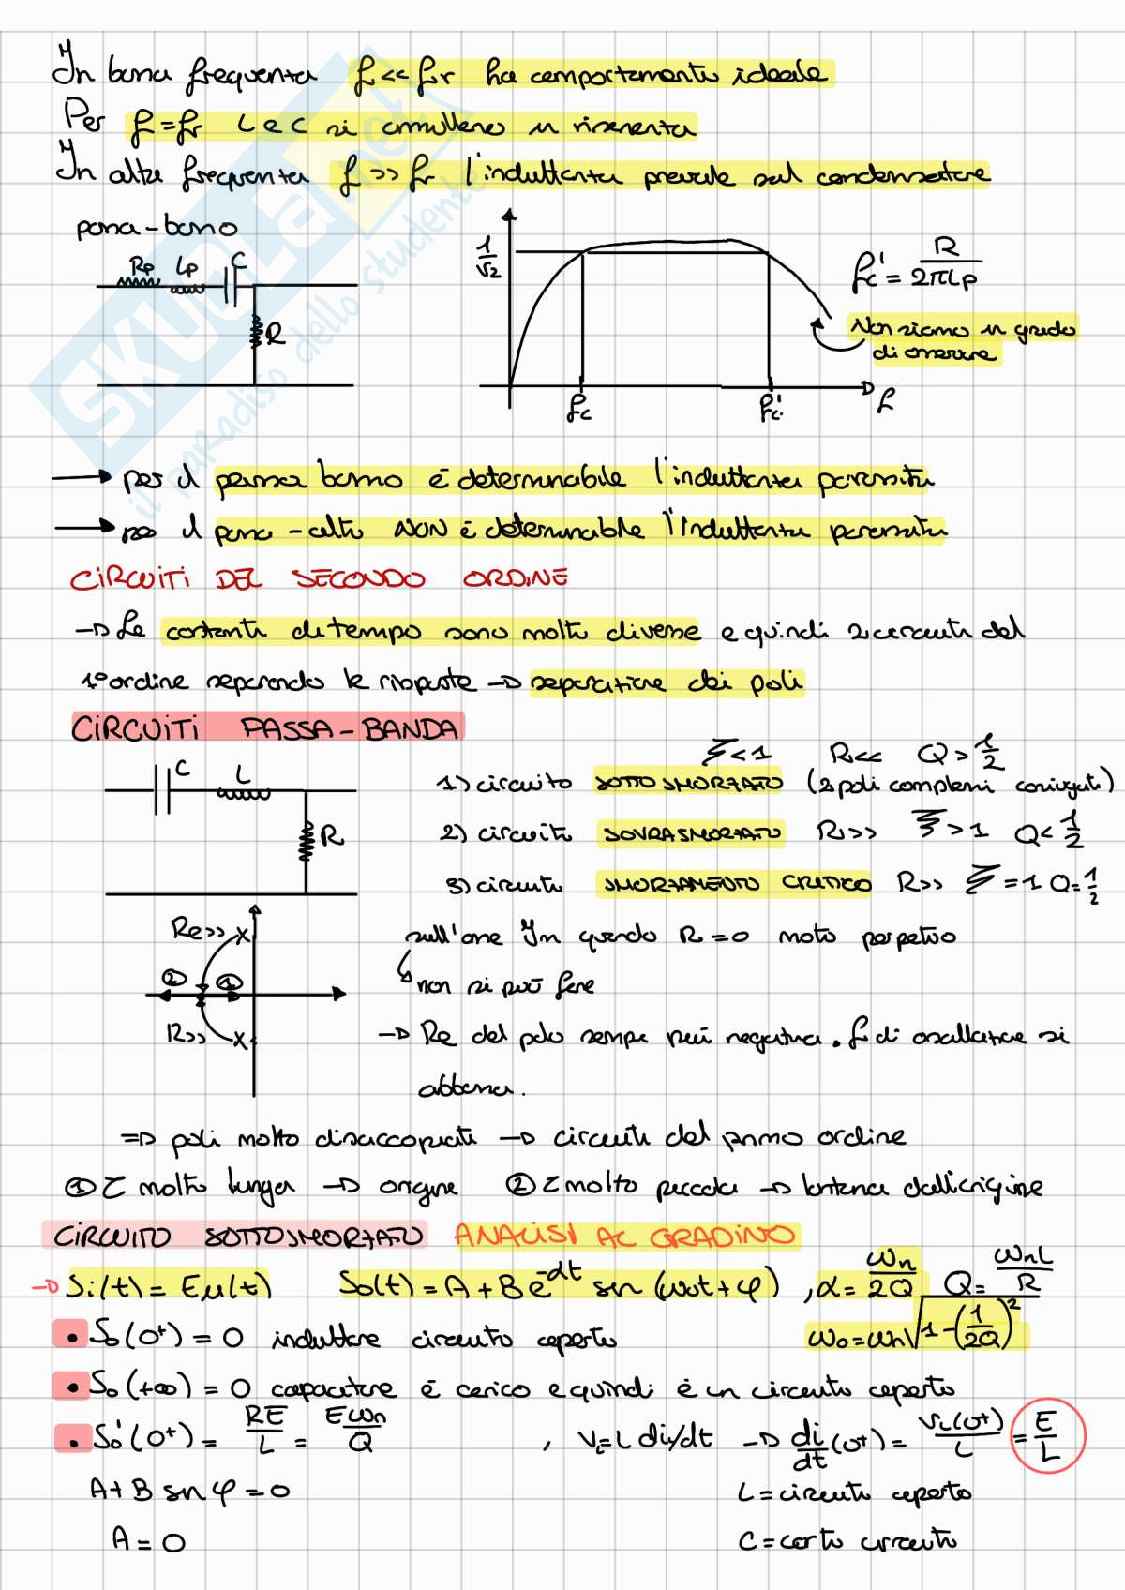 In bassa frequenza f << fr ha comportamento ideale
Per f = fr L e C si annullano in risonanza
In alta frequenza f >> fr l'induttanza prevale sul condensatore
passa-basso
Rp Lp C
R
1/√2
fc fc' f
fc' = R/2πLp
Non siamo in grado
di osservare
→ per il passa basso è determinabile l'induttanza parassita
→ per il passa-alto NON è determinabile l'induttanza parassita
CIRCUITI DEL SECONDO ORDINE
→ Le costanti di tempo sono molto diverse e quindi 2 circuiti del
1° ordine separando le risposte → separazione dei poli
CIRCUITI PASSA-BANDA
C L
R
ξ<1 R<< Q>1/2
1) circuito SOTTOSMORZATO (2 poli complessi coniugati)
2) circuito SOVRASMORZATO R>> ξ>1 Q<1/2
3) circuito SMORZAMENTO CRITICO R>> ξ=1 Q=1/2
Re>> x
② ①
R>> x
sull'asse Im quando R=0 moto perpetuo
non si può fare
→ Re del polo sempre più negativa. f di oscillazione si
abbassa.
⇒ poli molto disaccoppiati → circuiti del primo ordine
① τ molto lunga → origine ② τ molto piccola → lontana dall'origine
CIRCUITO SOTTOSMORZATO ANALISI AL GRADINO
→ Si(t) = Eμ(t) So(t) = A + B e^-αt sen(ωot + φ) , α = ωn/2Q Q = ωnL/R
• So(0+) = 0 induttore circuito aperto ωo = ωn√1-(1/2Q)²
• So(+∞) = 0 capacitore è carico e quindi è un circuito aperto
• So'(0+) = RE/L = Eωn/Q , VL = L di/dt → di/dt (0+) = VL(0+)/L = E/L
A + B sen φ = 0 L = circuito aperto
A = 0 C = corto circuito
SKUOLA.net
il paradiso dello studente